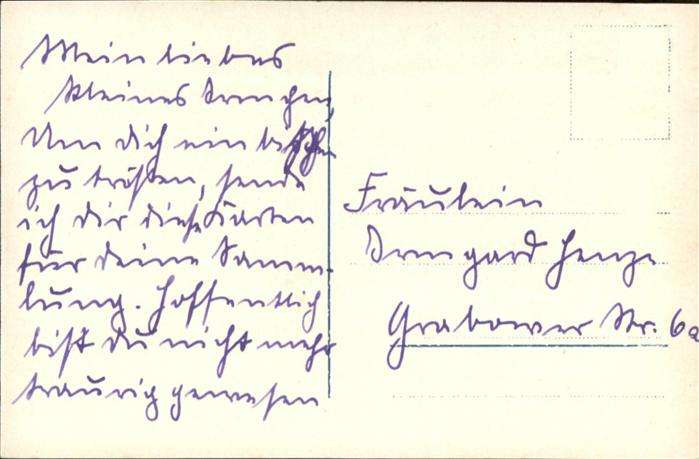 Mein liebes
kleines Irmchen,
Um dich ein bißchen
zu trösten, sende
ich dir diese Karten
für deine Samm-
lung. Hoffentlich
bist du nicht mehr
traurig gewesen
Fräulein
Irmgard Henze
Grabower Str. 6a